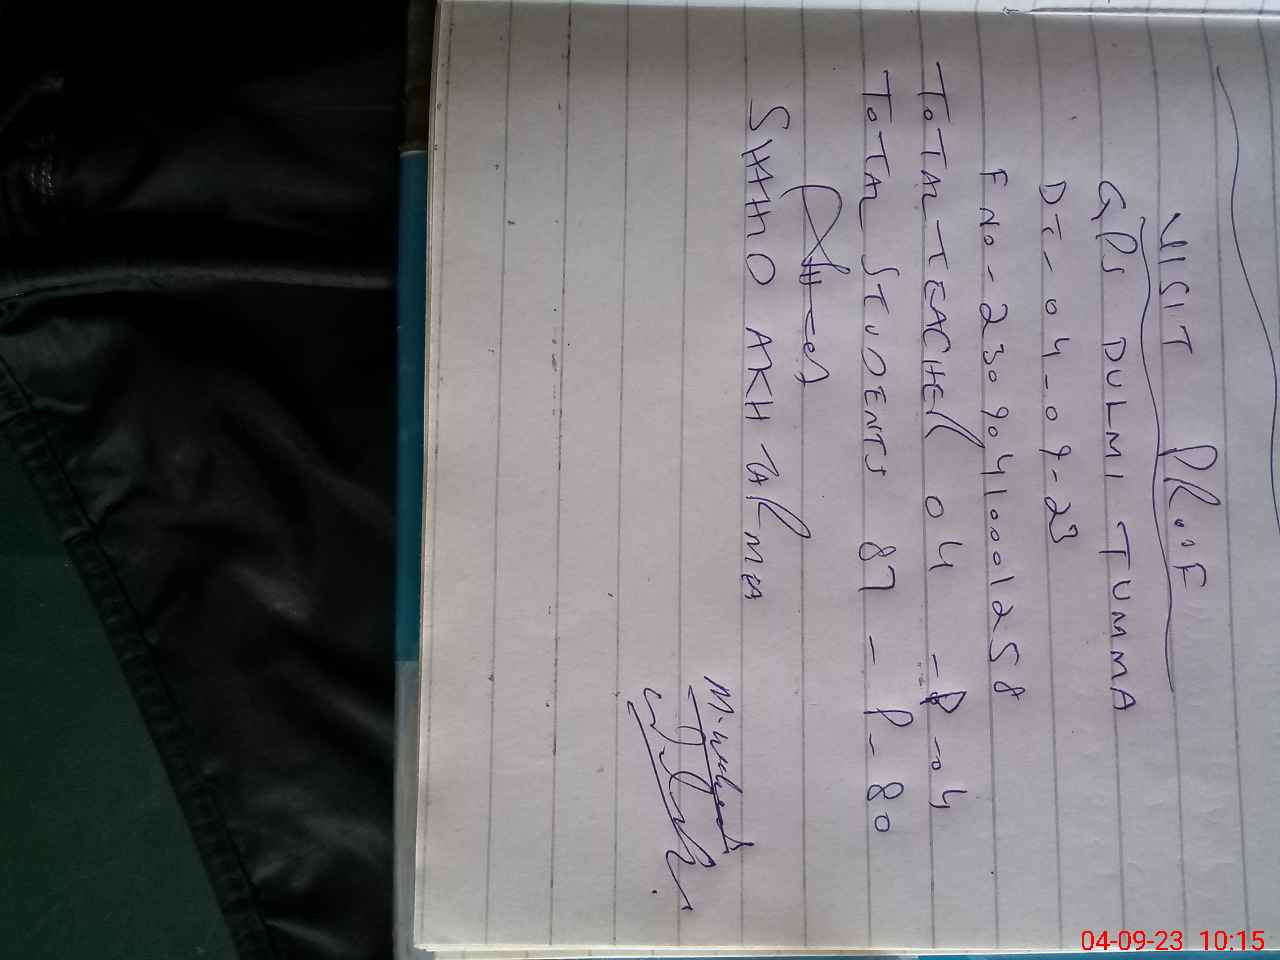 VISIT PROOF
GPS DULMI TUMMA
DT - 04-09-23
F No - 2309041000258
TOTAL TEACHER 04 - P - 04
TOTAL STUDENTS 87 - P - 80
SHAHID AKHTAR
04-09-23 10:15